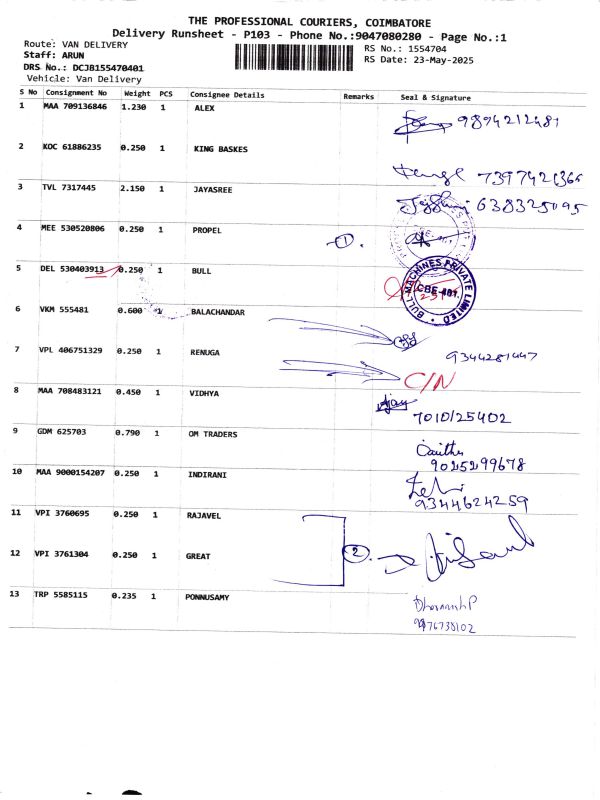 THE PROFESSIONAL COURIERS, COIMBATORE
Delivery Runsheet - P103 - Phone No.:9047080280 - Page No.:1
Route: VAN DELIVERY
Staff: ARUN
DRS No.: DCJB155470401
Vehicle: Van Delivery
RS No.: 1554704
RS Date: 23-May-2025
S No Consignment No Weight PCS Consignee Details Remarks Seal & Signature
1 MAA 709136846 1.230 1 ALEX 9894212481
2 KOC 61886235 0.250 1 KING BASKES
3 TVL 7317445 2.150 1 JAYASREE
4 MEE 530520806 0.250 1 PROPEL 1.
5 DEL 530403913 0.250 1 BULL
BULL MACHINES PRIVATE LIMITED
6 VKM 555481 0.600 1 BALACHANDAR
7 VPL 406751329 0.250 1 RENUGA 9344281447
C/N
8 MAA 708483121 0.450 1 VIDHYA Ajay
7010125402
9 GDM 625703 0.790 1 OM TRADERS
9025299678
10 MAA 9000154207 0.250 1 INDIRANI
9344624259
11 VPI 3760695 0.250 1 RAJAVEL
12 VPI 3761304 0.250 1 GREAT 2.
13 TRP 5585115 0.235 1 PONNUSAMY